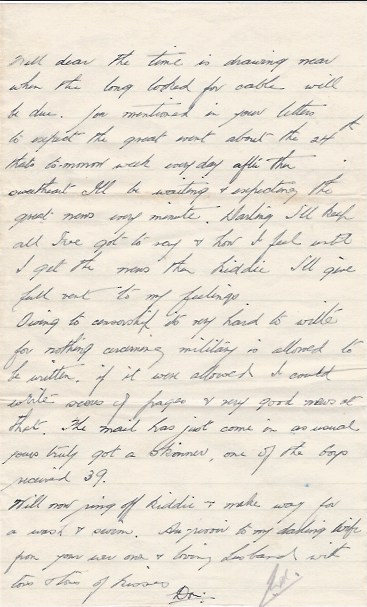 Well dear the time is drawing near
when the long looked for cable will
be due. You mentioned in your letters
to expect the great event about the 24th
thats to-morrow week every day after then
sweetheart I'll be waiting & expecting the
great news every minute. Darling I'll keep
all I've got to say & how I feel until
I get the news then Kiddie I'll give
full vent to my feelings
Owing to censorship its very hard to write
for nothing concerning military is allowed to
be written. if it were allowed I could
write scores of pages & very good news at
that. The mail has just come in as usual
yours truly got a skinner, one of the boys
received 39.
Will now ring off Kiddie & make way for
a wash & swim. Au-revoir to my darling Wife
from your own one & loving husband with
tons & tons of kisses